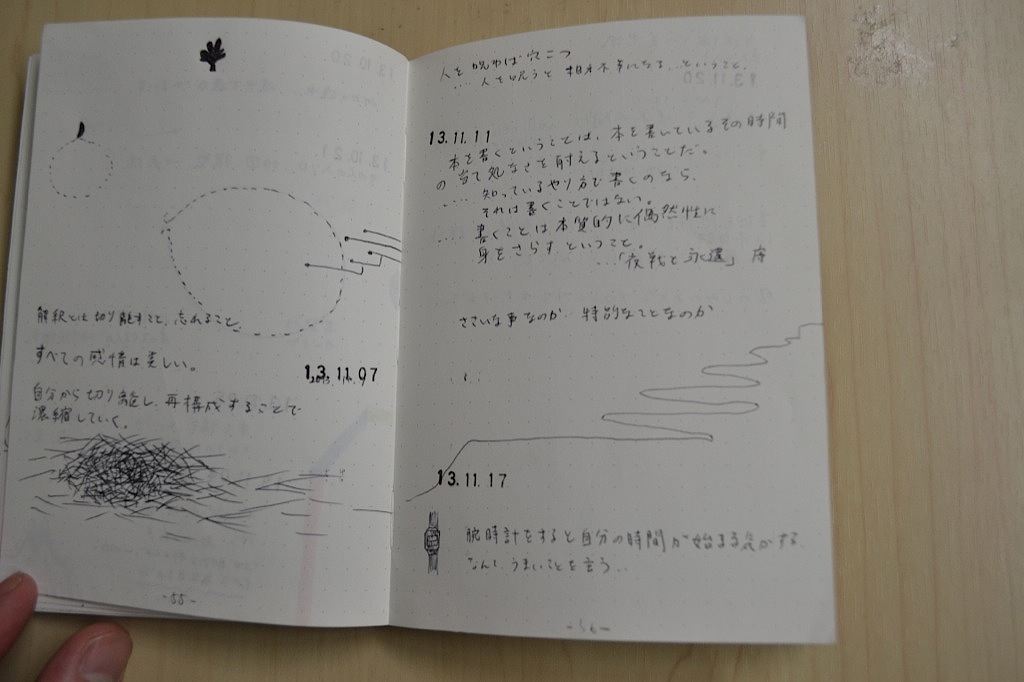 解釈とは切り離すこと、忘れること。
すべての感情は美しい。
13.11.07
自分から切り離し、再構成することで
濃縮していく。
-55-
人を呪わば穴二つ
… 人を呪うと相手不幸になる…ということ。
13.11.11
本を書くということは、本を書いているその時間
の当て処なさを耐えるということだ。
…. 知っているやり方で書くのなら、
それは書くことではない。
…. 書くことは本質的に偶然性に
身をさらすということ。
…「夜戦と永遠」 序
ささいな事なのか 特別なことなのか
13.11.17
腕時計をすると自分の時間が始まる気がする
なんて、うまいことを言う..
-56-